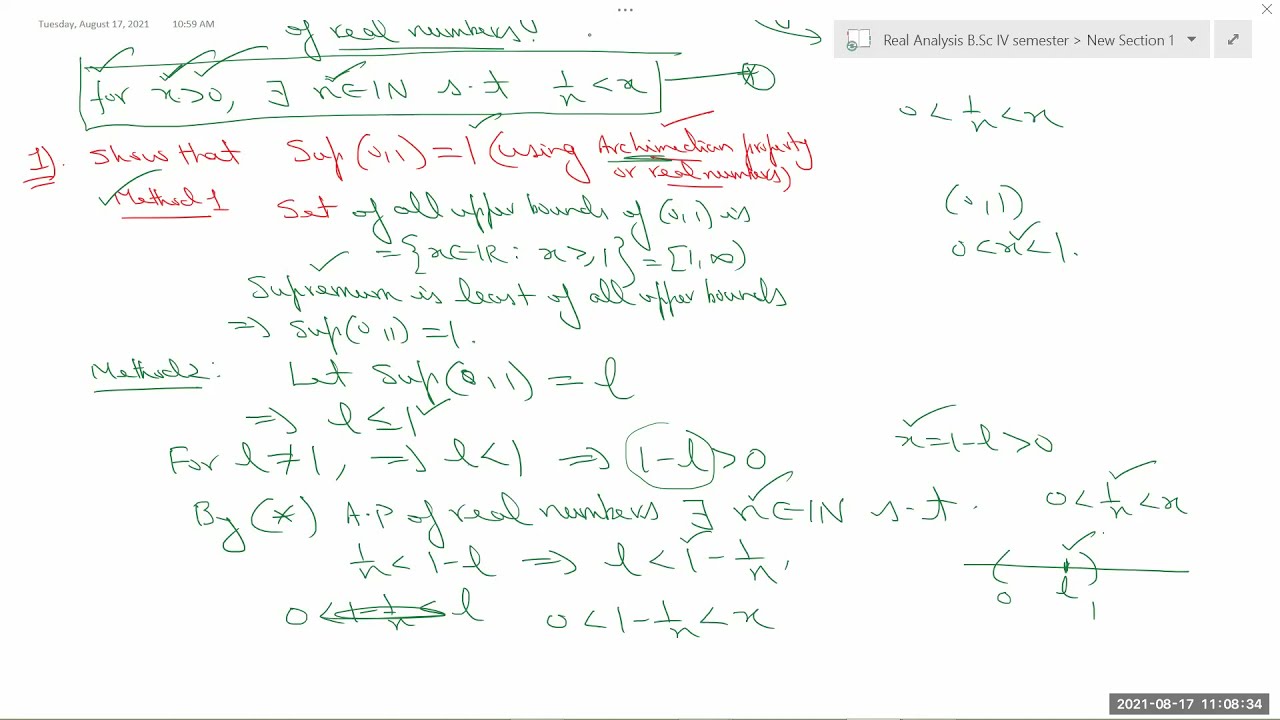 Tuesday, August 17, 2021 10:59 AM
Real Analysis B.Sc IV semester > New Section 1
of real numbers?
for x>0, ∃ n∈IN s.t 1/n < x
(*)
0 < 1/n < x
1). Show that Sup (0,1) = 1 (using Archimedian property
or real numbers)
Method 1 Set of all upper bounds of (0,1) is
(0,1)
= {x∈IR : x≥1} = [1,∞)
0 < x < 1.
Supremum is least of all upper bounds
=> Sup(0,1) = 1.
Method2: Let Sup(0,1) = l
=> l ≤ 1
x = 1-l > 0
For l ≠ 1, => l < 1 => 1-l > 0
By (*) A.P of real numbers ∃ n∈IN s.t.
0 < 1/n < x
1/n < 1-l => l < 1 - 1/n,
0 l 1
0 < 1 - 1/n < l 0 < 1 - 1/n < x
2021-08-17 11:08:34